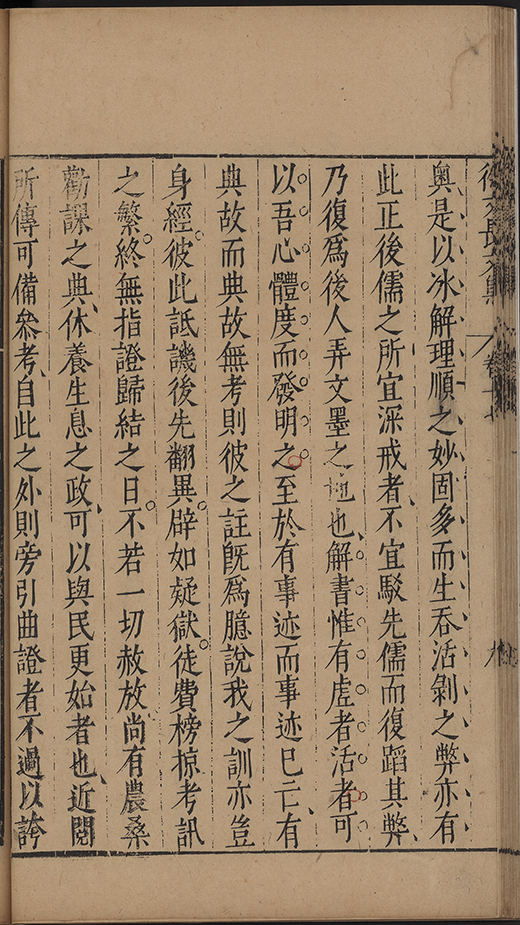 徐文長文集 卷十七
奧是以冰解理順之妙固多而生吞活剝之弊亦有
此正後儒之所宜深戒者不宜駁先儒而復蹈其弊
乃復爲後人弄文墨之地也解書惟有虛者活者可
以吾心體度而發明之至於有事迹而事迹已亡有
典故而典故無考則彼之註旣爲臆說我之訓亦豈
身經彼此詆譏後先翻異辟如疑獄徒費榜掠考訊
之繁終無指證歸結之日不若一切赦放尚有農桑
勸課之典休養生息之政可以與民更始者也近閱
所傳可備叅考自此之外則旁引曲證者不過以誇